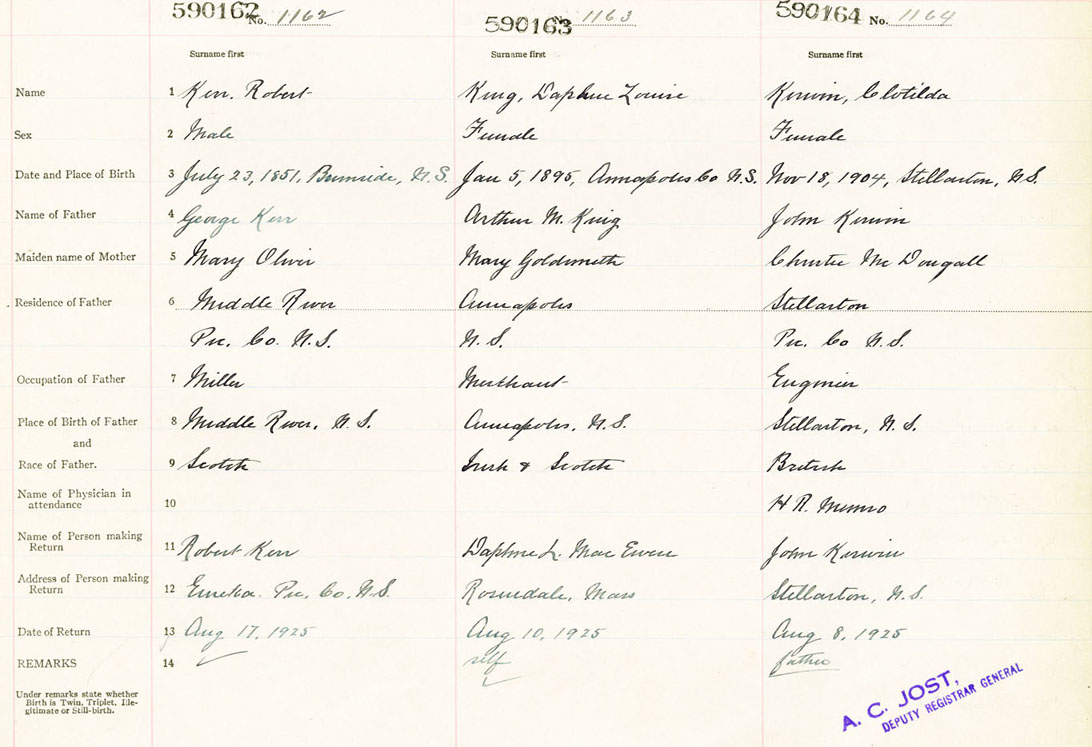 590162 No. 1162 590163 No. 1163 590164 No. 1164
Surname first Surname first Surname first
Name 1 Kerr. Robert King, Daphne Louise Kirwin, Clotilda
Sex 2 Male Female Female
Date and Place of Birth 3 July 23, 1851, Burnside, N.S. Jan 5, 1895, Annapolis Co N.S. Nov 18, 1904, Stellarton, N.S.
Name of Father 4 George Kerr Arthur M. King John Kirwin
Maiden name of Mother 5 Mary Oliver Mary Goldsmith Christie Mc Dougall
Residence of Father 6 Middle River Annapolis Stellarton
Pic. Co. N.S. N.S. Pic. Co N.S.
Occupation of Father 7 Miller Merchant Engineer
Place of Birth of Father 8 Middle River, N.S. Annapolis, N.S. Stellarton, N.S.
and
Race of Father. 9 Scotch Irish & Scotch British
Name of Physician in
attendance 10 H R. Munro
Name of Person making
Return 11 Robert Kerr Daphne L. Mac Ewen John Kirwin
Address of Person making
Return 12 Eureka. Pic. Co. N.S. Roslindale, Mass Stellarton, N.S.
Date of Return 13 Aug 17, 1925 Aug 10, 1925 Aug 8, 1925
REMARKS 14 self father
Under remarks state whether
Birth is Twin, Triplet, Ille-
gitimate or Still-birth.
A. C. JOST,
DEPUTY REGISTRAR GENERAL